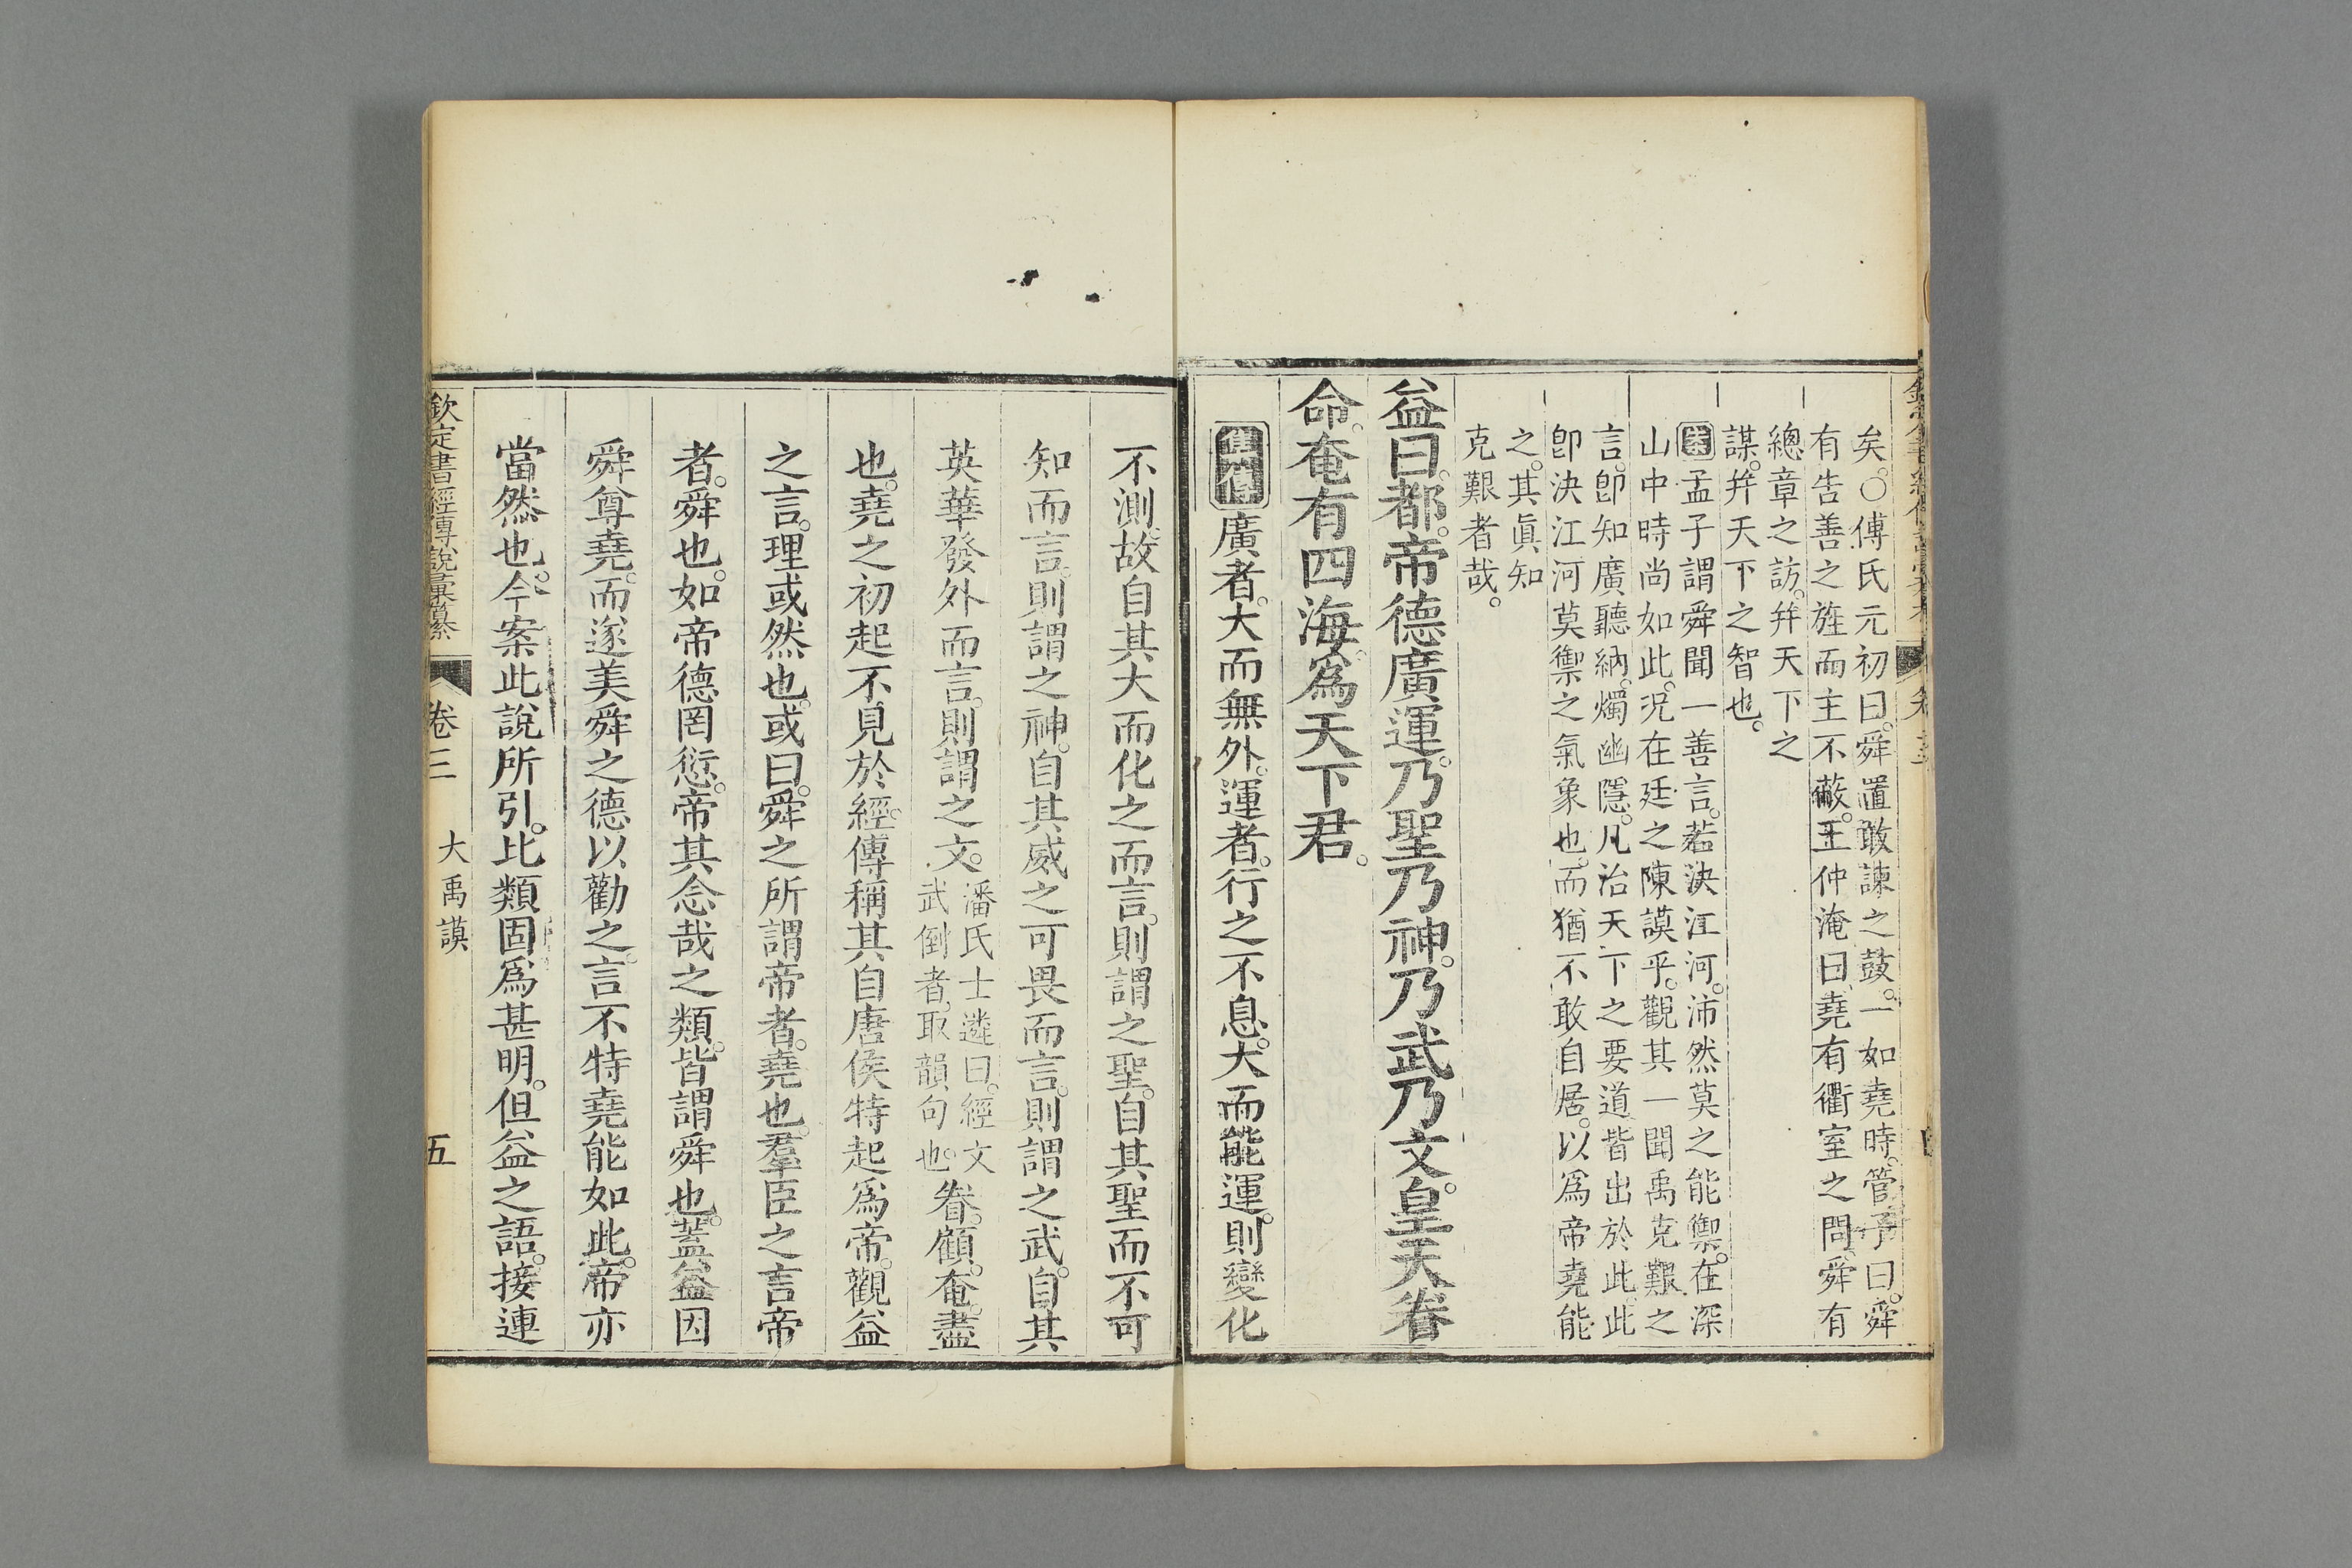 矣。○傅氏元初曰。舜置敢諫之鼓。一如堯時。管子曰。舜
有告善之旌而主不蔽。王仲淹曰。堯有衢室之問。舜有
總章之訪。幷天下之
謀。幷天下之智也。
孟子謂舜聞一善言。若決江河。沛然莫之能禦。在深
山中時尚如此。況在廷之陳謨乎。觀其一聞禹克艱之
言。卽知廣聽納。燭幽隱。凡治天下之要道。皆出於此。此
卽決江河莫禦之氣象也。而猶不敢自居。以爲帝堯能
之。其眞知
克艱者哉。
益曰。都。帝德廣運。乃聖乃神。乃武乃文。皇天眷
命。奄有四海。爲天下君。
集傳廣者。大而無外。運者。行之不息。大而能運。則變化
不測。故自其大而化之而言。則謂之聖。自其聖而不可
知而言。則謂之神。自其威之可畏而言。則謂之武。自其
英華發外而言。則謂之文。潘氏士遴曰。經文
武倒者。取韻句也。眷。顧。奄。盡
也。堯之初起不見於經。傳稱其自唐侯特起爲帝。觀益
之言。理或然也。或曰。舜之所謂帝者。堯也。羣臣之言帝
者。舜也。如帝德罔愆。帝其念哉之類。皆謂舜也。蓋益因
舜尊堯。而遂美舜之德以勸之。言不特堯能如此。帝亦
當然也。今案此說所引。比類固爲甚明。但益之語。接連
欽定書經傳說彙纂
卷三
大禹謨
五